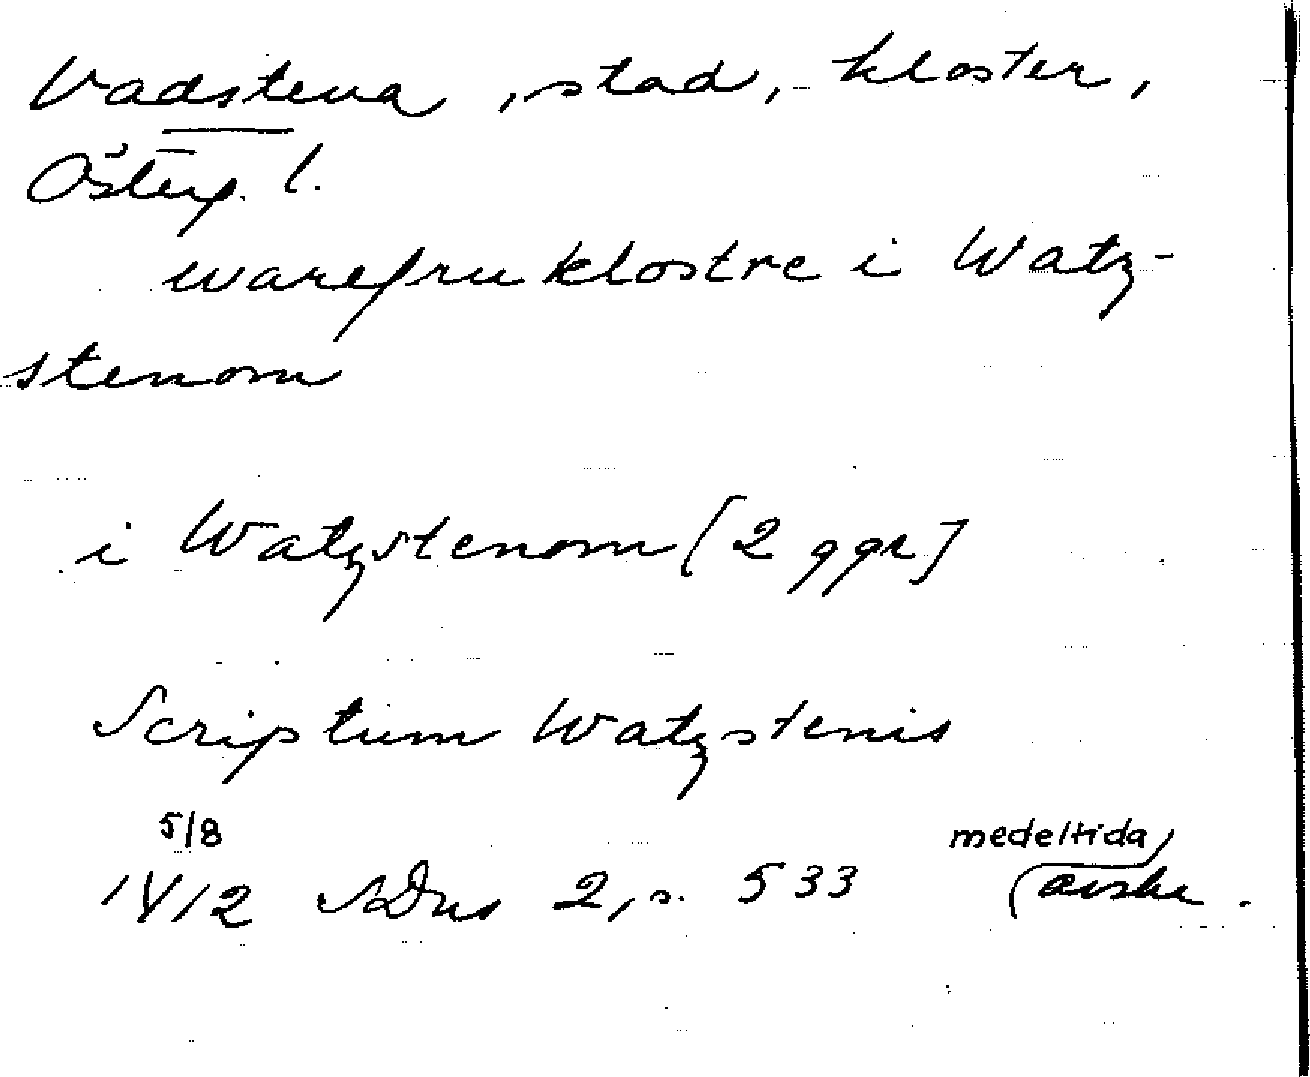 Vadstena, stad, kloster,
Österg. l.
warefru klostre i Watz-
stenom
i Watzstenom [2 ggr]
Scriptum Watzstenis
5/8
1412 SDns 2, s. 533 medeltida
avskr.